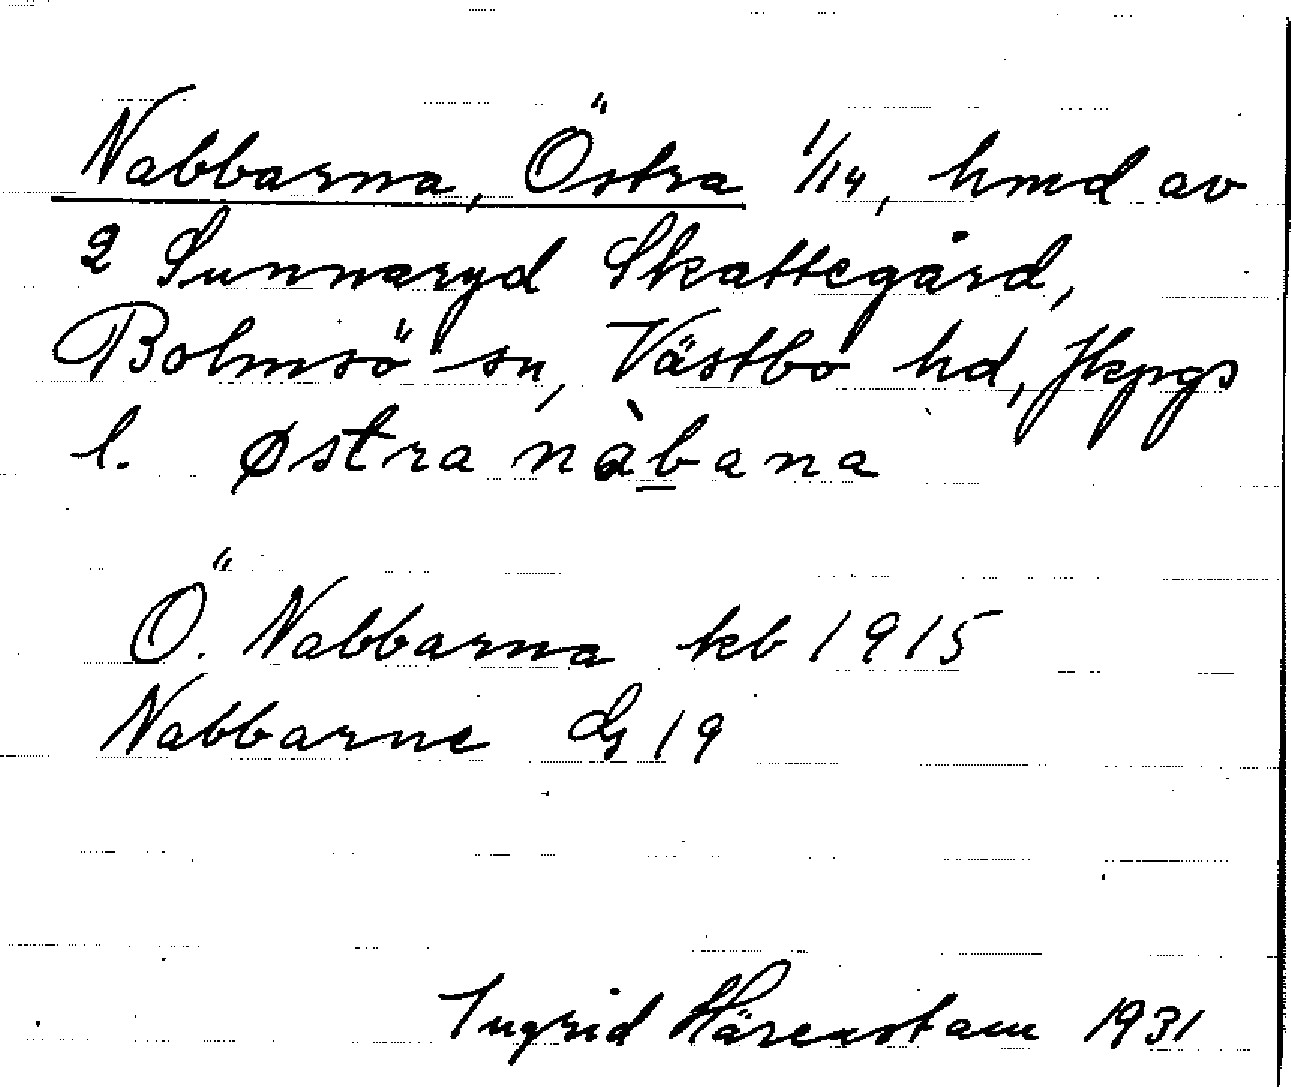 Nabbarna, Östra 1/14, hmd av
2 Sunnaryd Skattegård,
Bolmsö sn, Västbo hd, Jkpgs
l. østra nàbana
Ö. Nabbarna kb 1915
Nabbarne G 19
Ingrid Härenstam 1931